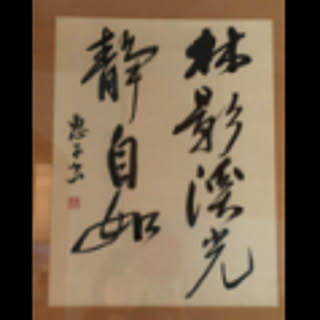 林影溪光
静自如